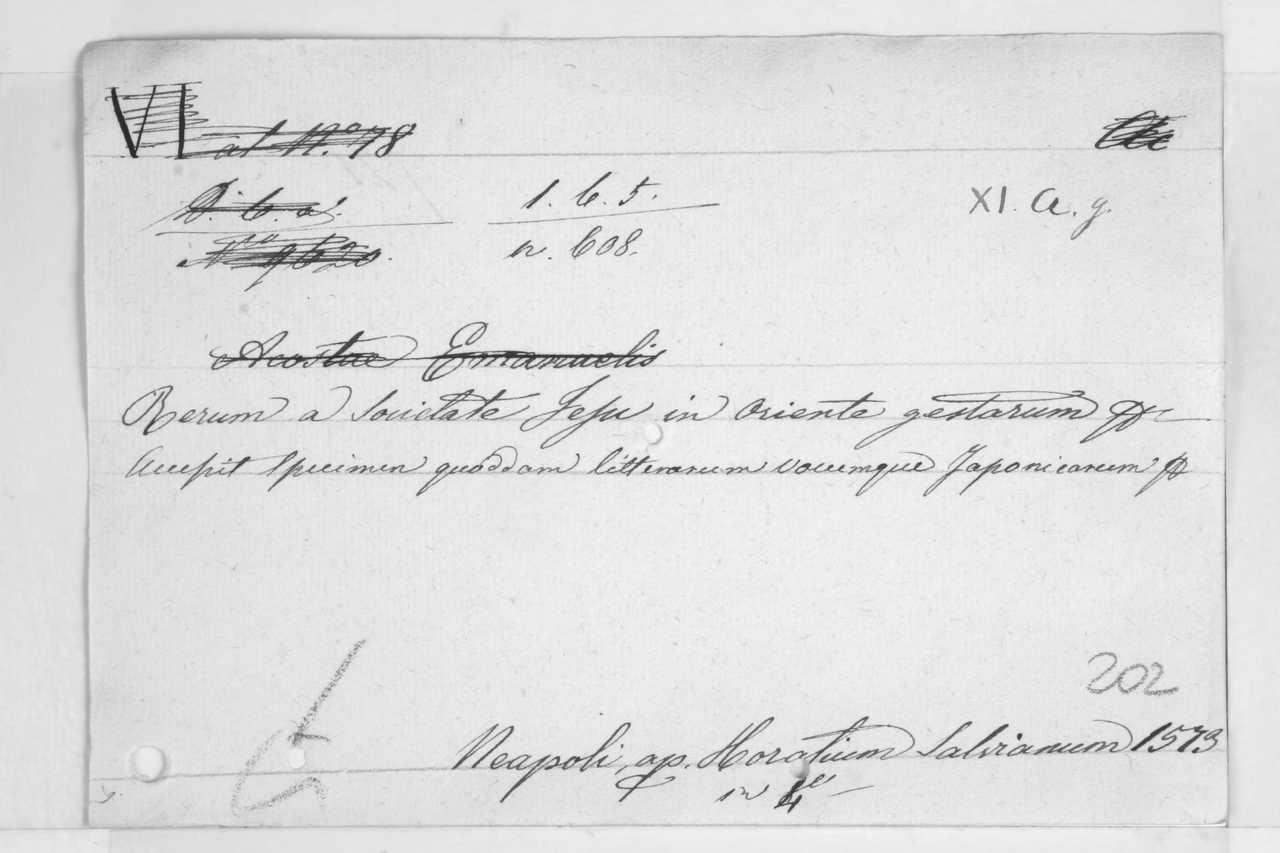 VI al N.° 78
1. 6. 5. XI. a. g.
n. 608.
Acostae Emanuelis
Rerum a Societate Jesu in Oriente gestarum
Accepit Specimen quoddam litterarum vocumque Japonicarum
202
Neapoli, ap. Horatium Salvianum 1573
in 4°